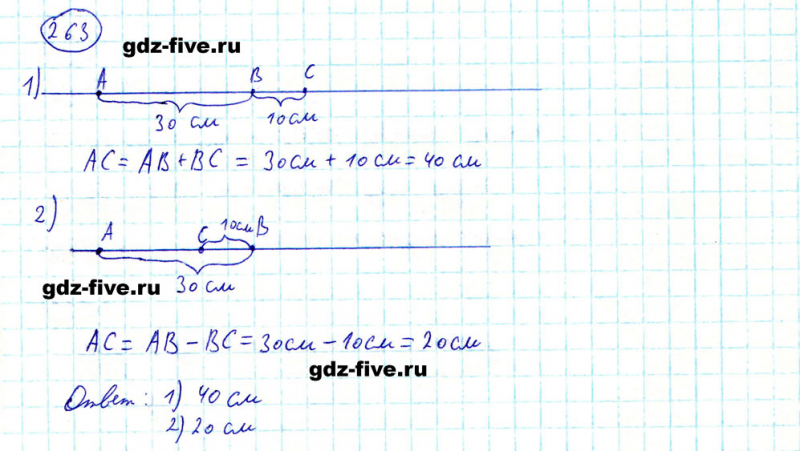 263
gdz-five.ru
1) A B C
30 см 10см
AC = AB + BC = 30см + 10см = 40 см
2) A C 10см B
gdz-five.ru 30 см
AC = AB - BC = 30см - 10см = 20см
gdz-five.ru
Ответ: 1) 40 см
2) 20 см